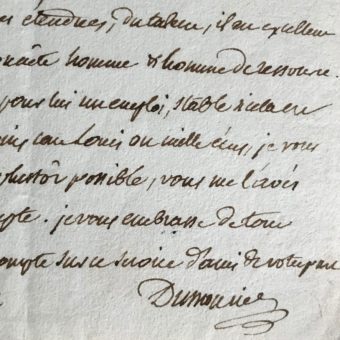 étendues, du talent, il est excellent
honnête homme & homme de ressource.
pour lui un emploi, stable
cent louis ou mille écus, je vous
plustôt possible, vous me l'avés
je vous embrasse de tout
compte sur ce service d'ami de votre part